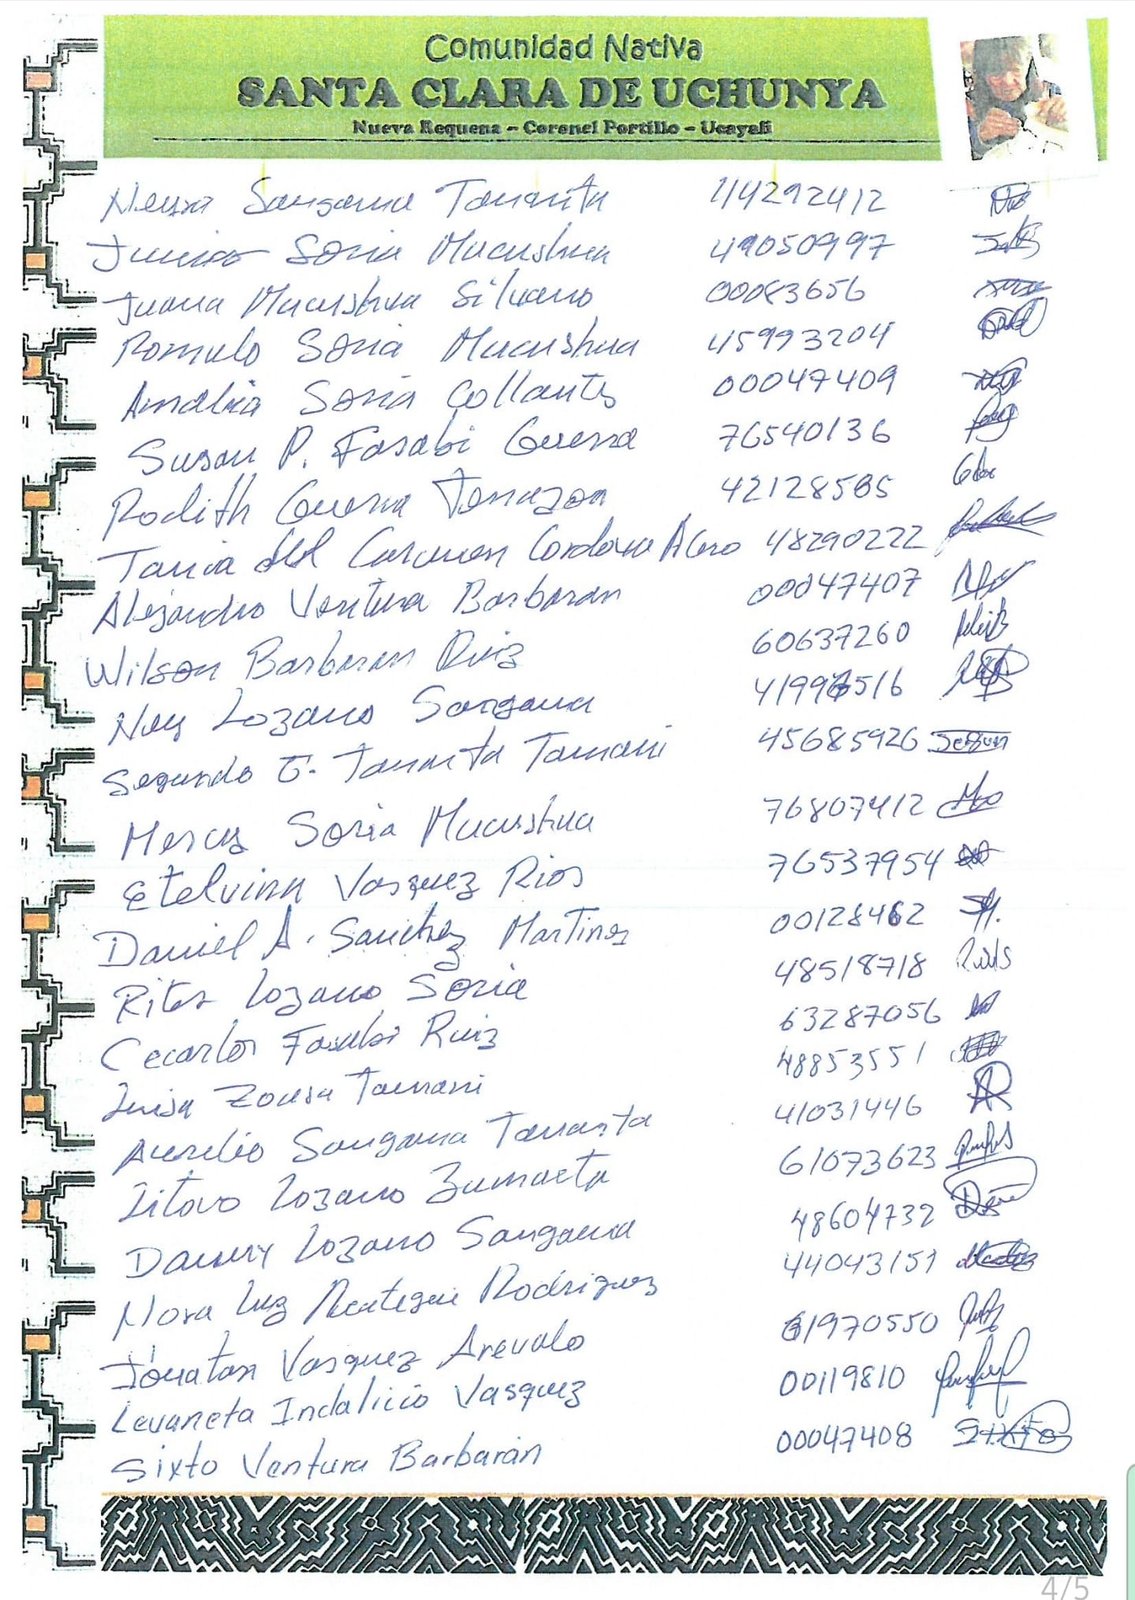 Comunidad Nativa
SANTA CLARA DE UCHUNYA
Nueva Requena – Coronel Portillo – Ucayali
Sangama Tananta 114292412
Junior Soria Mucushua 49050997
Juana Mucushua Silvano 00083656
Romulo Soria Mucushua 45993204
Amalia Soria Collantes 00047409
Susan P. Fasabi Guerra 76540136
Rodith Guerra 42128585
Tania del Carmen Cordova 48290222
Alejandro Ventura Barbaran 00047407
Wilson Barbaran Ruiz 60637260
Ney Lozano Sangama
Segundo G. Tananta Tamani 45685926
Mercy Soria Mucushua 76807412
Etelvina Vasquez Rios 76537954
Daniel A. Sanchez Martinez 00128462
Rita Lozano Soria 48518718
Cecarlos Fasabi Ruiz 63287056
Luisa Tamani 48853551
Aurelio Sangama Tananta 41031446
Litovo Lozano Zumaeta 61073623
Danny Lozano Sangama 48604732
Nora Luz Reategui Rodriguez 44043151
Jonatan Vasquez Arevalo 61970550
Levaneta Indalicio Vasquez 00119810
Sixto Ventura Barbarán 00047408
4/5